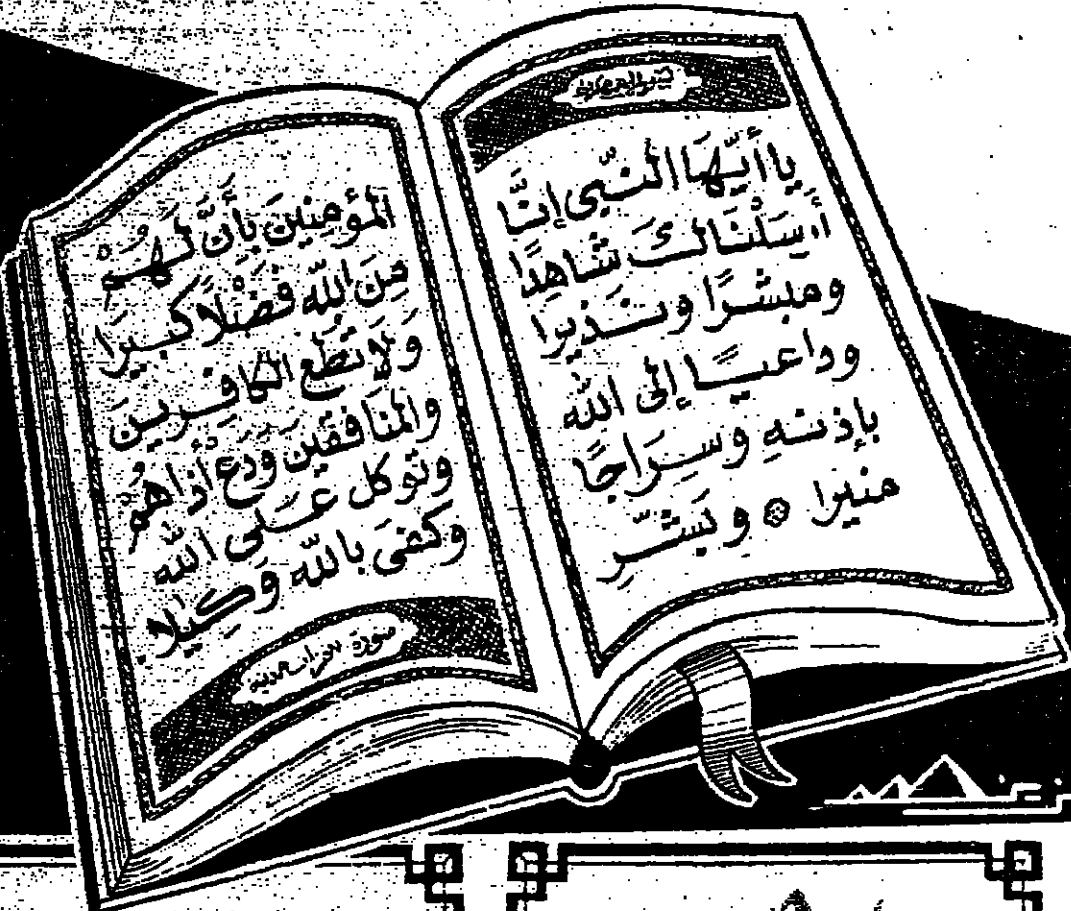 يا أيّها النبّي إنَّا
أرسَلْنَاكَ شَاهِدًا
ومبشرًا ونذيرا
وداعيًا إلى الله
بإذنهِ وسِرَاجًا
منيرا ۞ وبَشّرِ
المؤمِنِينَ بأَنَّ لَهُمْ
مِنَ الله فضْلًا كبيرًا
وَلَا تُطِع الكافِرينَ
والمنافقينَ وَدَع أَذاهُم
وتوكل عَلى الله
وكفىَ بالله وَكِيلا
سورة مدنية